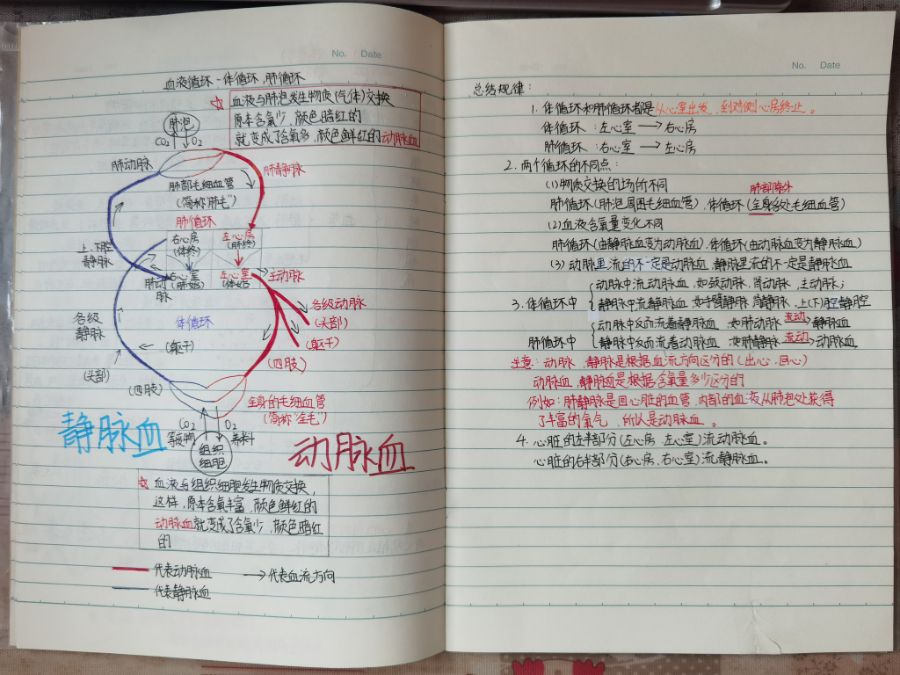 No. Date
血液循环-体循环、肺循环
☆ 血液与肺泡发生物质(气体)交换
原本含氧少、颜色暗红的
就变成了含氧多、颜色鲜红的动脉血
肺泡
CO₂ O₂
肺动脉
肺静脉
肺部毛细血管
(简称"肺毛")
肺循环
上、下腔
静脉
右心房
(体终)
左心房
(肺终)
右心室
(肺始)
左心室
体始
主动脉
肺动
脉
各级动脉
(头部)
(躯干)
(四肢)
各级
静脉
体循环
(躯干)
(头部)
(四肢)
全身的毛细血管
(简称"全毛")
CO₂ O₂
养料
组织
细胞
静脉血
动脉血
☆ 血液与组织细胞发生物质交换,
这样,原本含氧丰富、颜色鲜红的
动脉血就变成了含氧少、颜色暗红
的
代表动脉血
代表血流方向
代表静脉血
No. Date
总结规律:
1. 体循环和肺循环都是从心室出发、到对侧心房终止。
体循环:左心室→右心房
肺循环:右心室→左心房
2. 两个循环的不同点:
(1)物质交换的场所不同
肺部除外
肺循环(肺泡周围毛细血管)、体循环(全身各处毛细血管)
(2)血液含氧量变化不同
肺循环(由静脉血变为动脉血)、体循环(由动脉血变为静脉血)
(3)动脉里流的不一定是动脉血、静脉里流的不一定是静脉血
动脉中流动脉血、如颈动脉、肾动脉、主动脉;
3. 体循环中
静脉中流静脉血、如手臂静脉、肾静脉、上(下)腔静腔
动脉中反而流着静脉血、如肺动脉 流动→静脉血
肺循环中
静脉中反而流着动脉血、如肺静脉 流动→动脉血
注意:动脉、静脉是根据血流方向区分的(出心、回心)
动脉血、静脉血是根据含氧量多少区分的
例如:肺静脉是回心脏的血管、内部的血液从肺泡处获得
了丰富的氧气、所以是动脉血。
4. 心脏的左半部分(左心房、左心室)流动脉血。
心脏的右半部分(右心房、右心室)流静脉血。